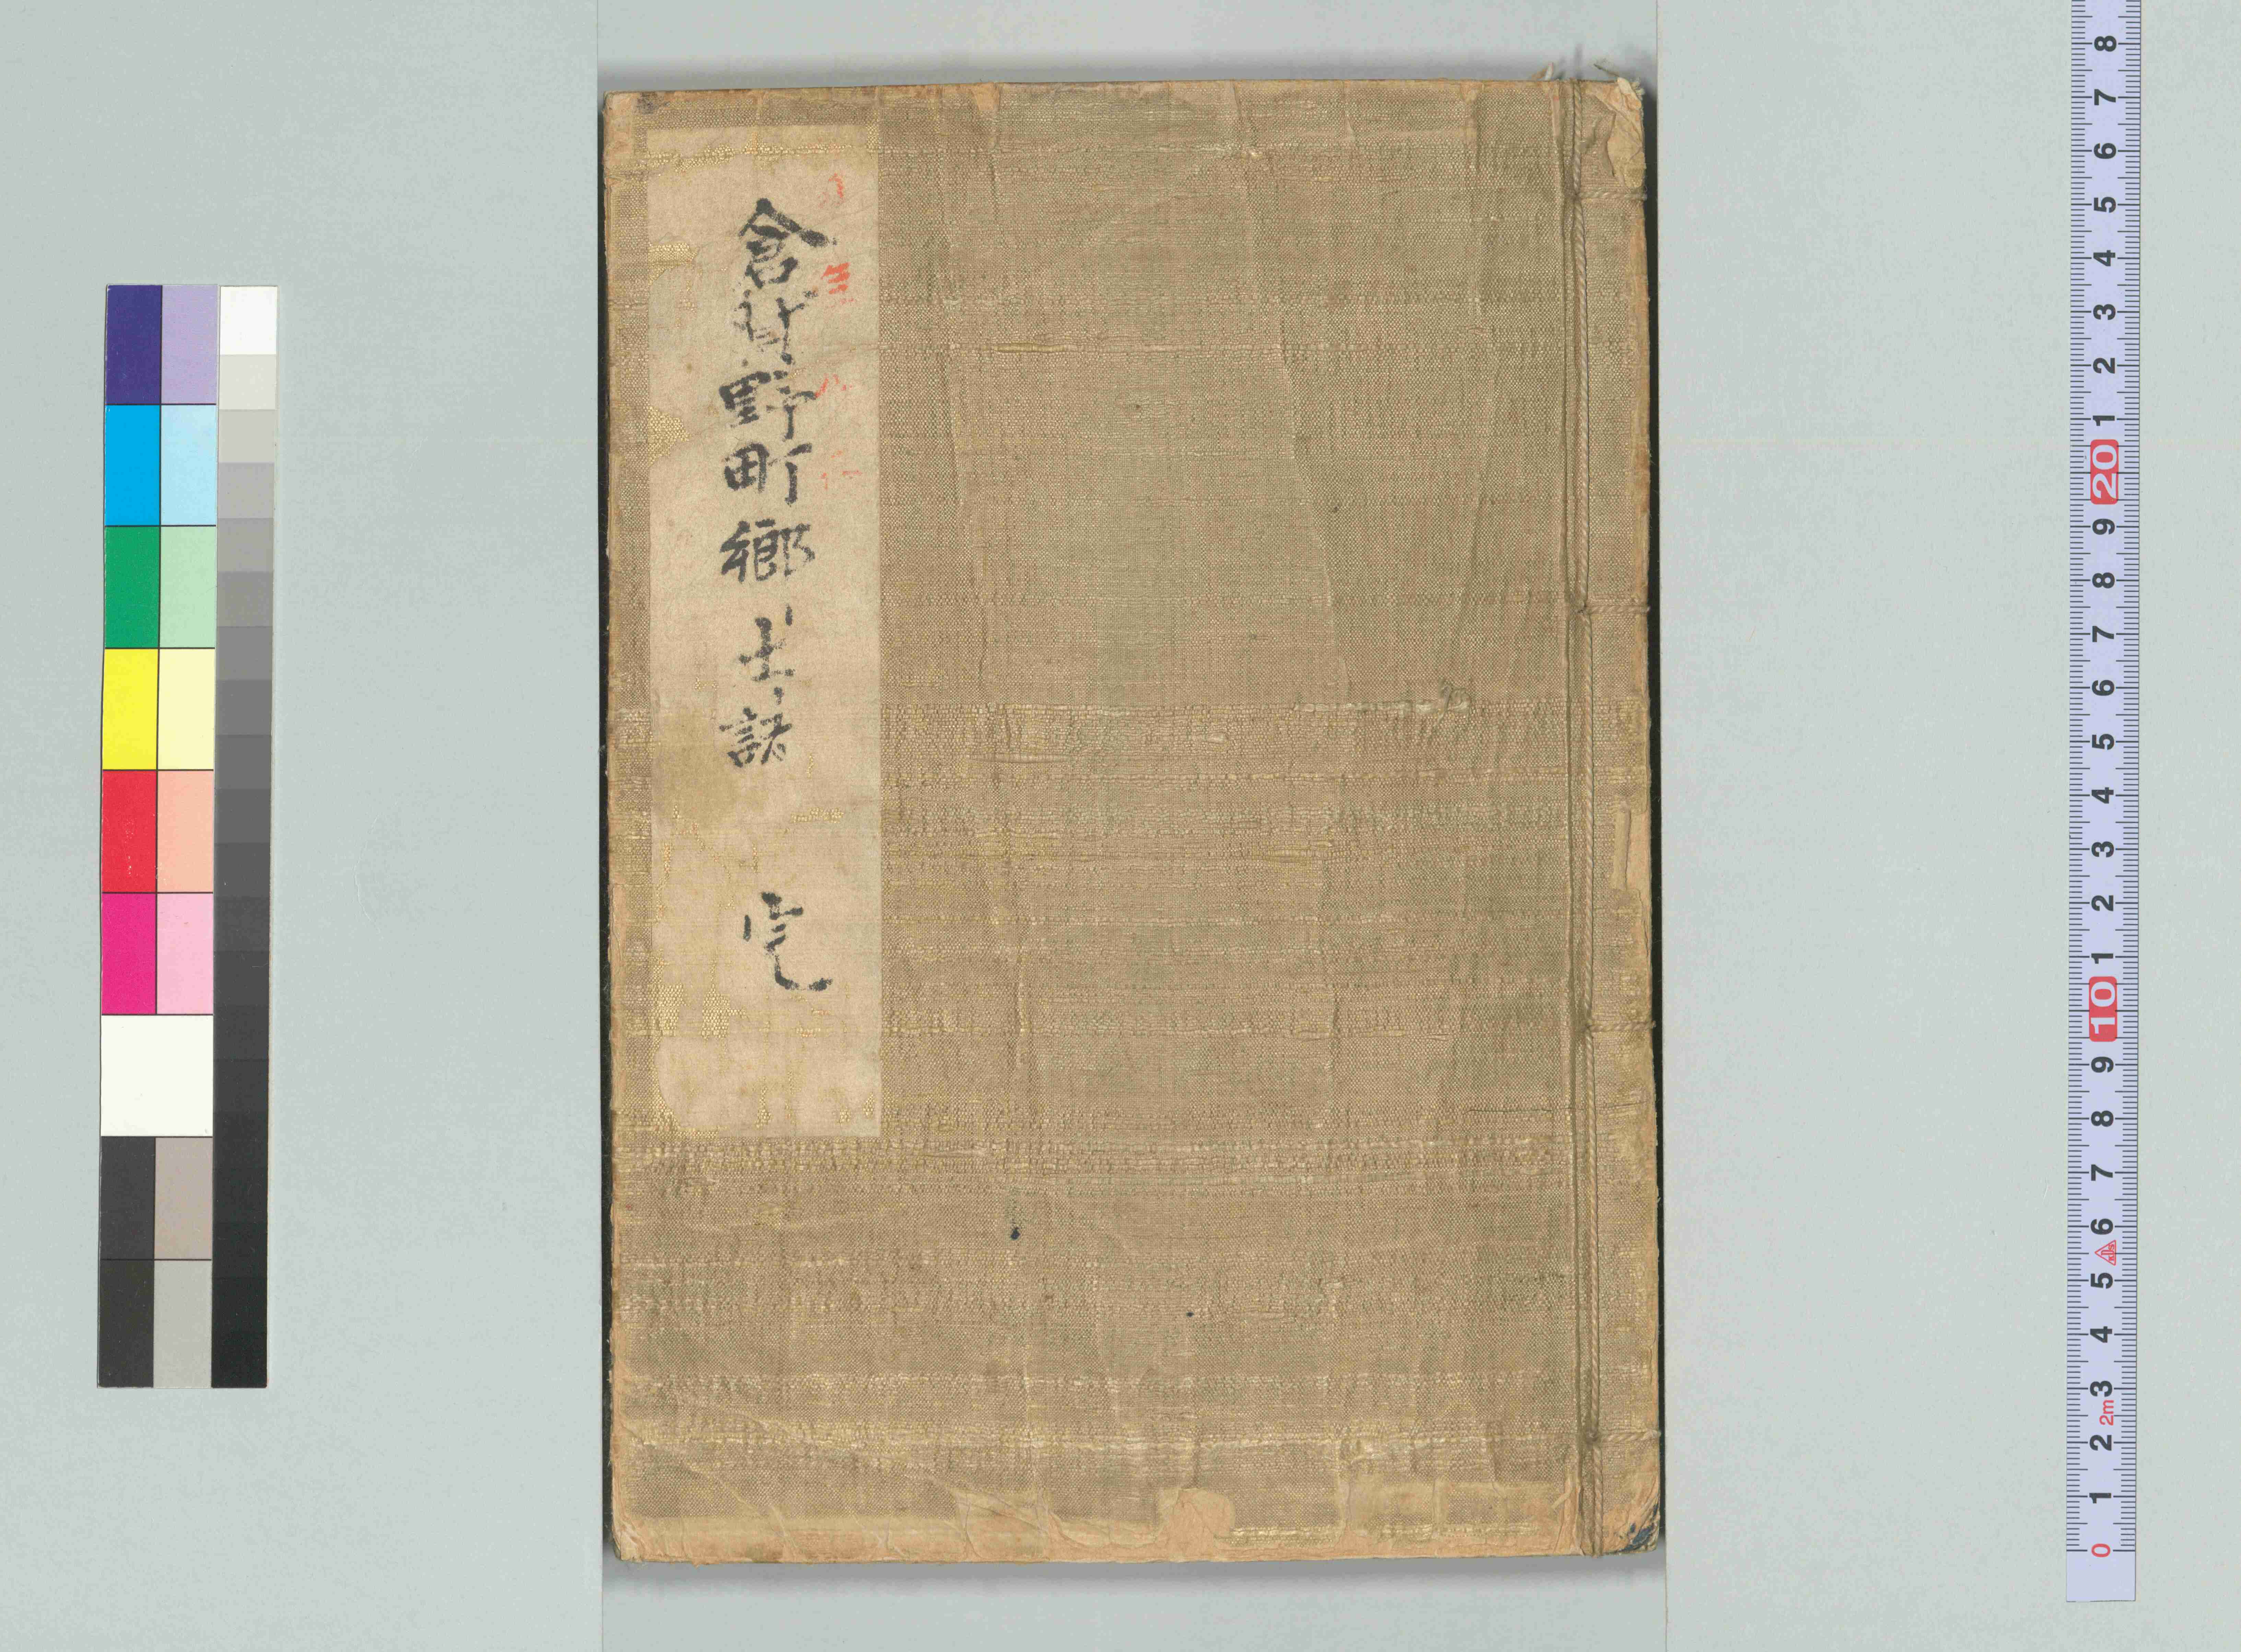 倉賀野町郷土誌　完
0 1 2 2m 3 4 5 6 7 8 9 10 1 2 3 4 5 6 7 8 9 20 1 2 3 4 5 6 7 8